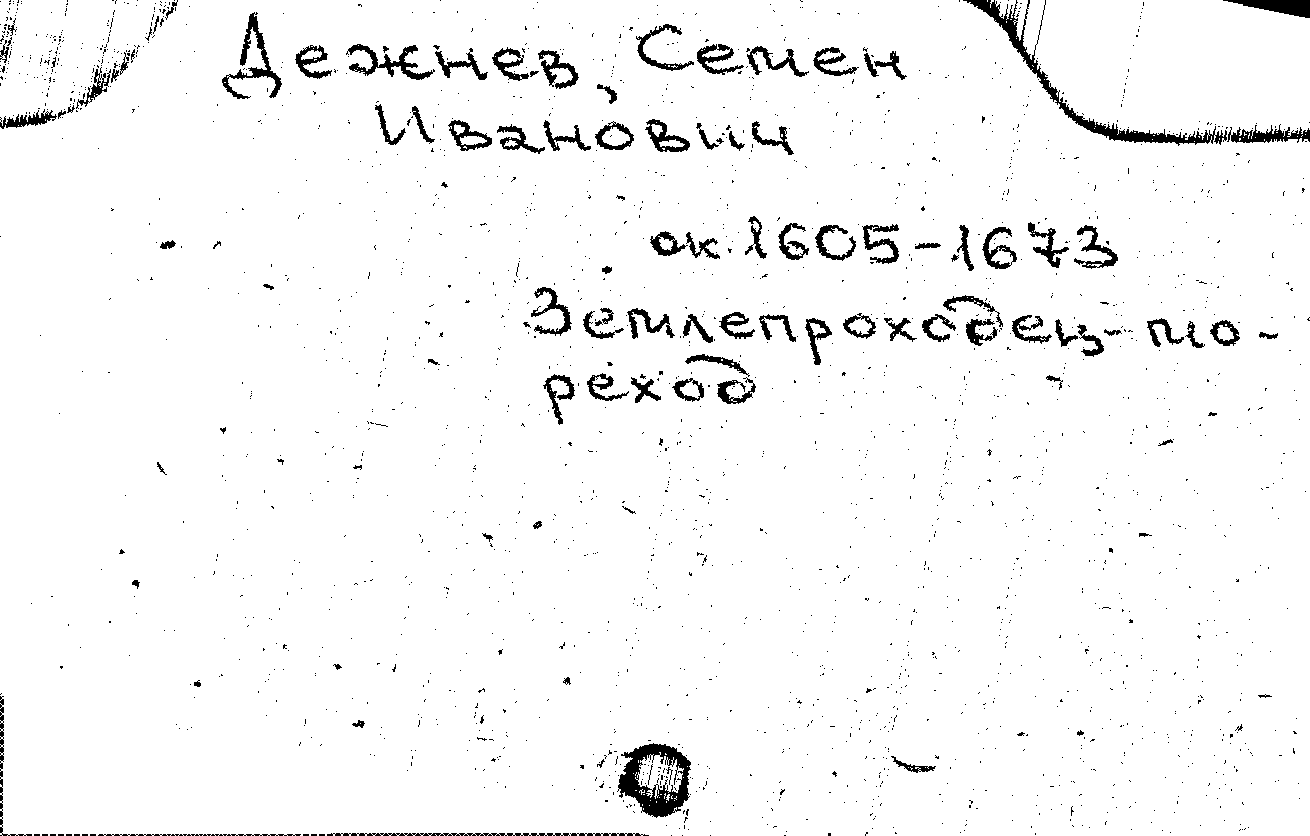 Дежнев, Семен
Иванович
ок. 1605-1673
Землепроходец-мо-
реход